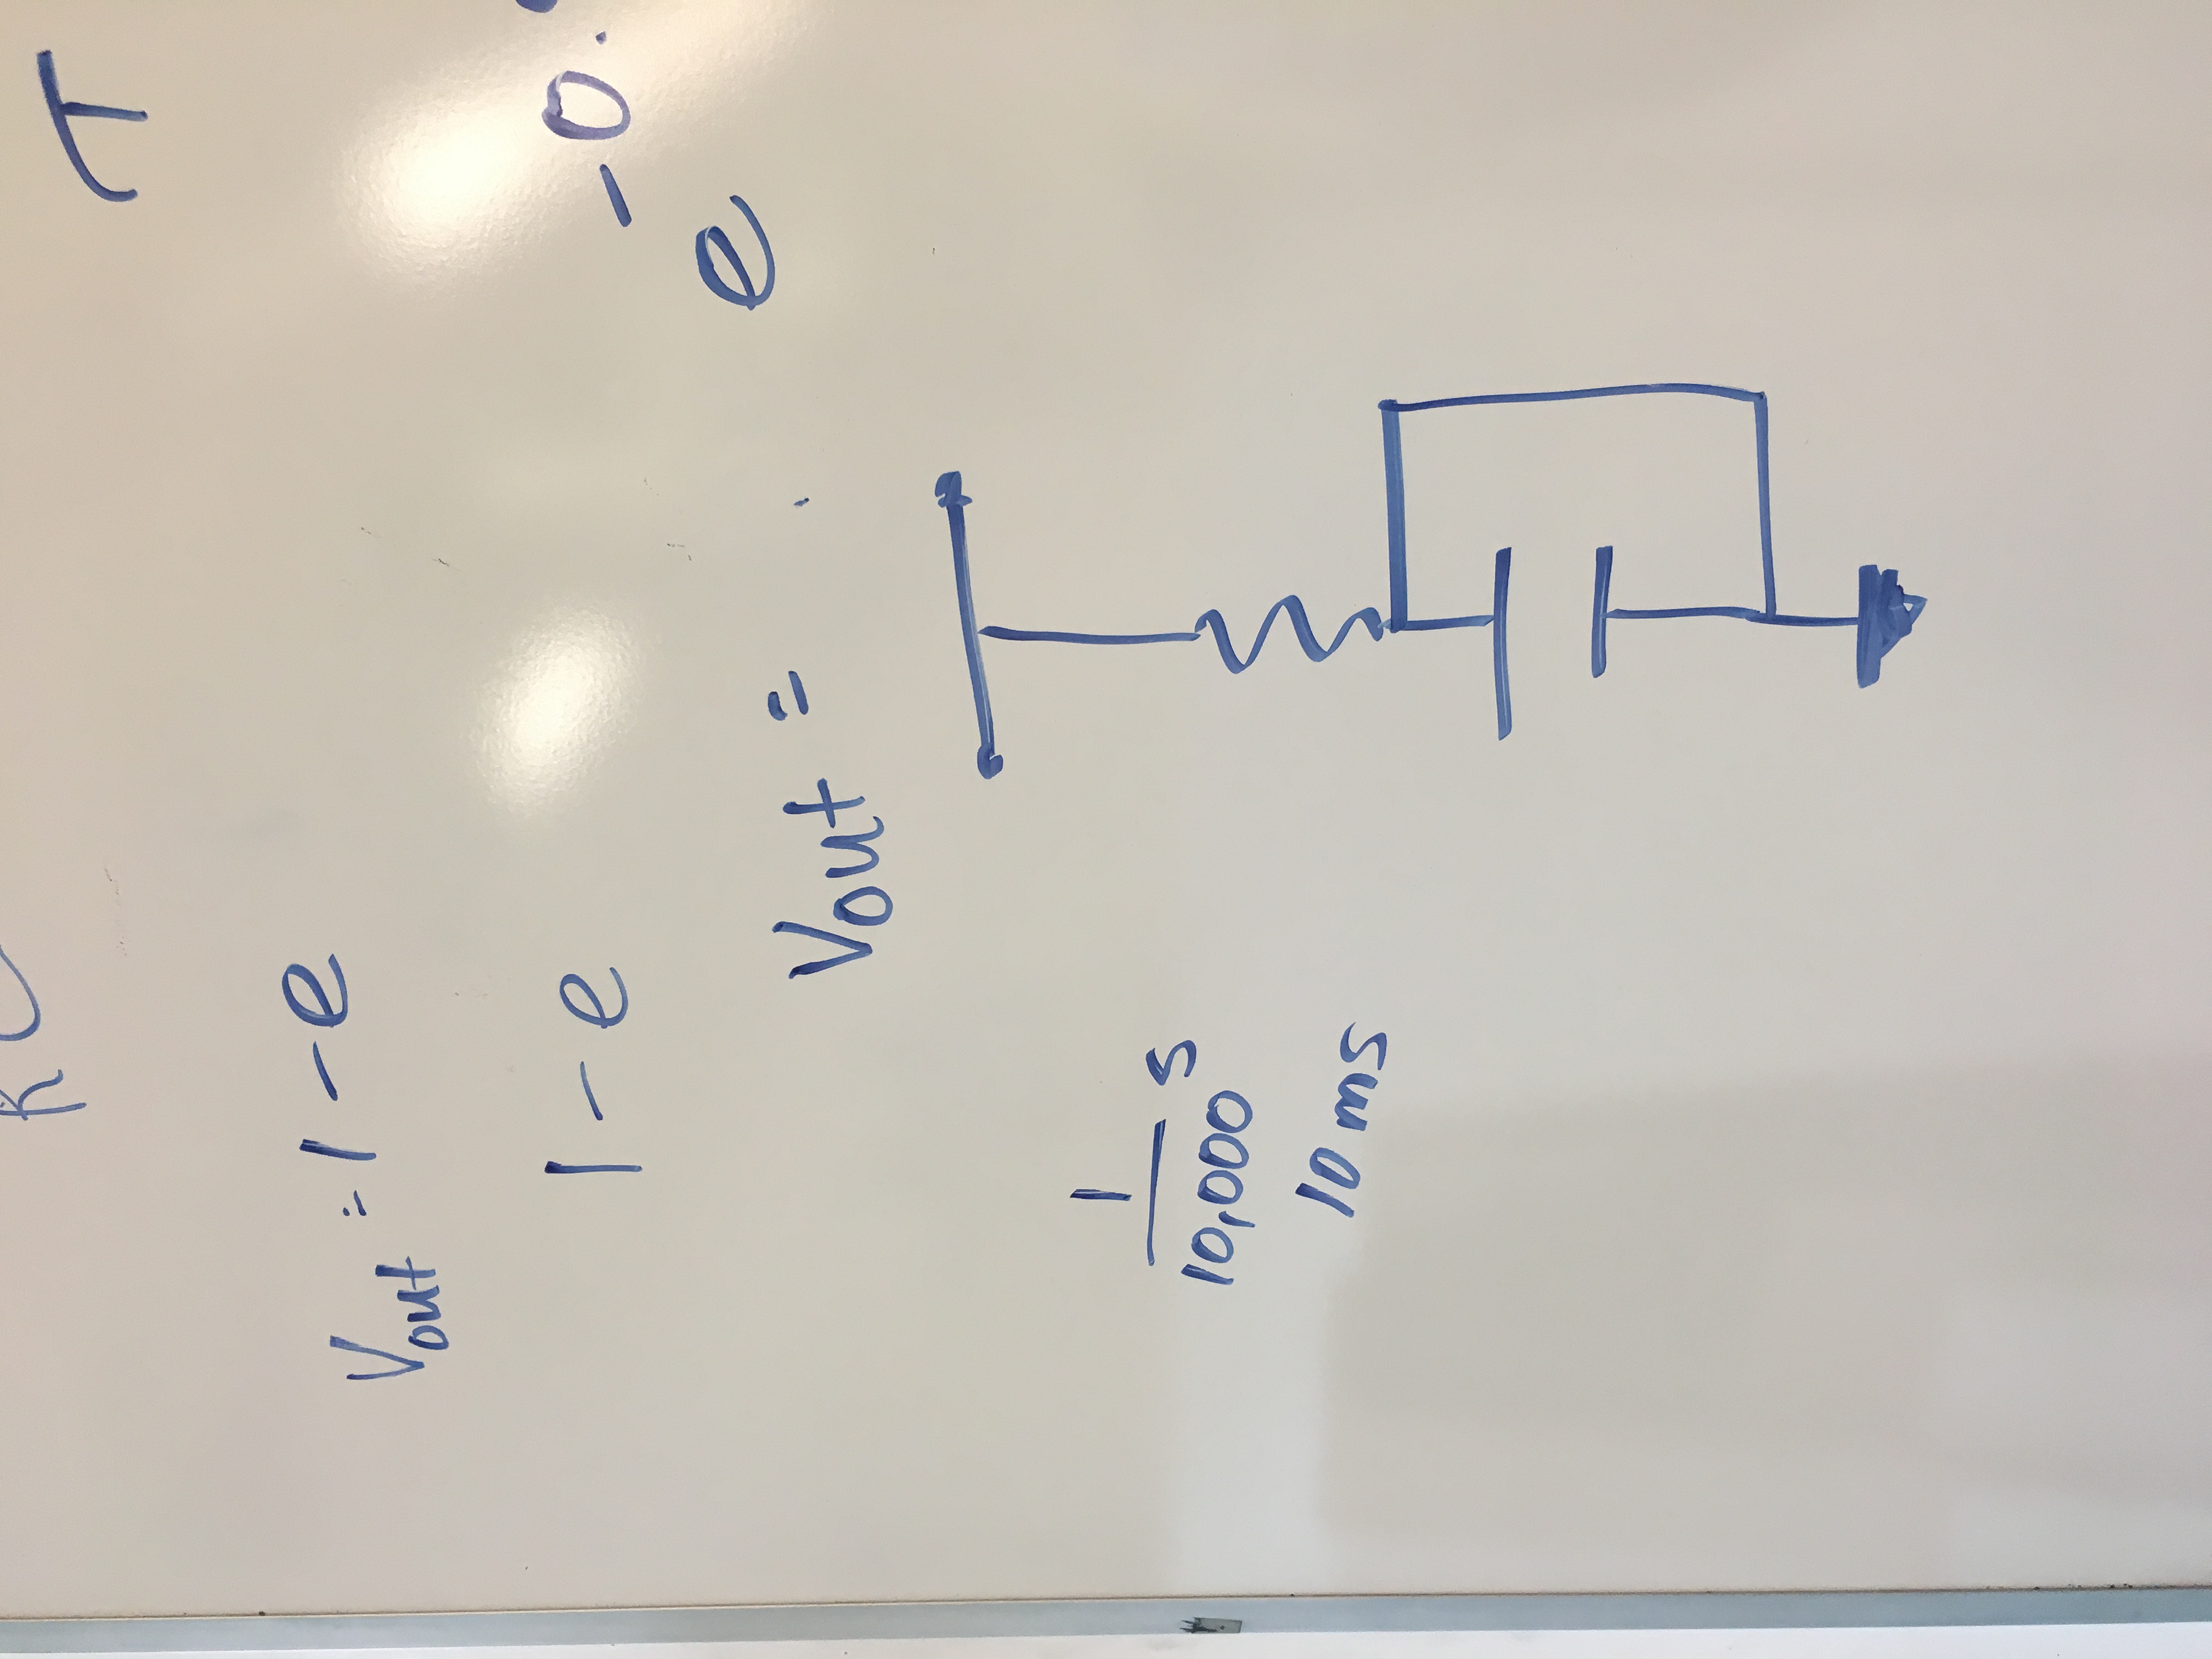 RC
τ
Vout = 1 - e
1 - e
e -0.
Vout =
1
10,000 s
10 ms